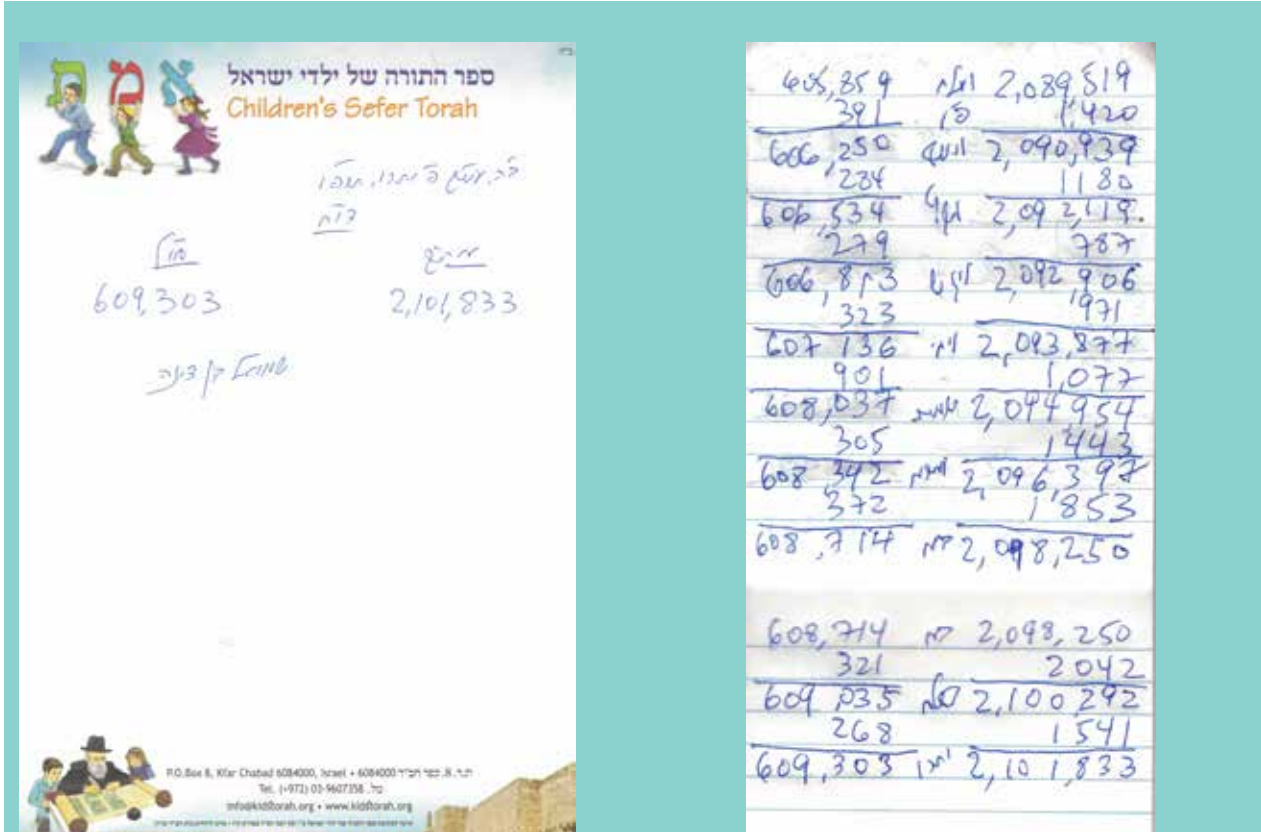 ב"ה
אמת
ספר התורה של ילדי ישראל
Children's Sefer Torah
ב"ה, עש"ק פ' יתרו,
דו"ח
חו"ל
609,303 2,101,833
שמואל בן דינה
P.O.Box 8, Kfar Chabad 6084000, Israel • ת.ד. 8, כפר חב"ד 6084000
Tel. (+972) 03-9607358 .טל
info@kidstorah.org • www.kidstorah.org
605,859 2,089,519
391 1,420
606,250 וישב 2,090,939
284 1180
606,534 מקץ 2,092,119
279 787
606,813 ויגש 2,092,906
323 971
607 136 ויחי 2,093,877
901 1,077
608,037 שמות 2,094,954
305 1443
608,342 וארא 2,096,397
372 1853
608,714 2,098,250
608,714 2,098,250
321 2042
609,035 בשלח 2,100,292
268 1541
609,303 יתרו 2,101,833